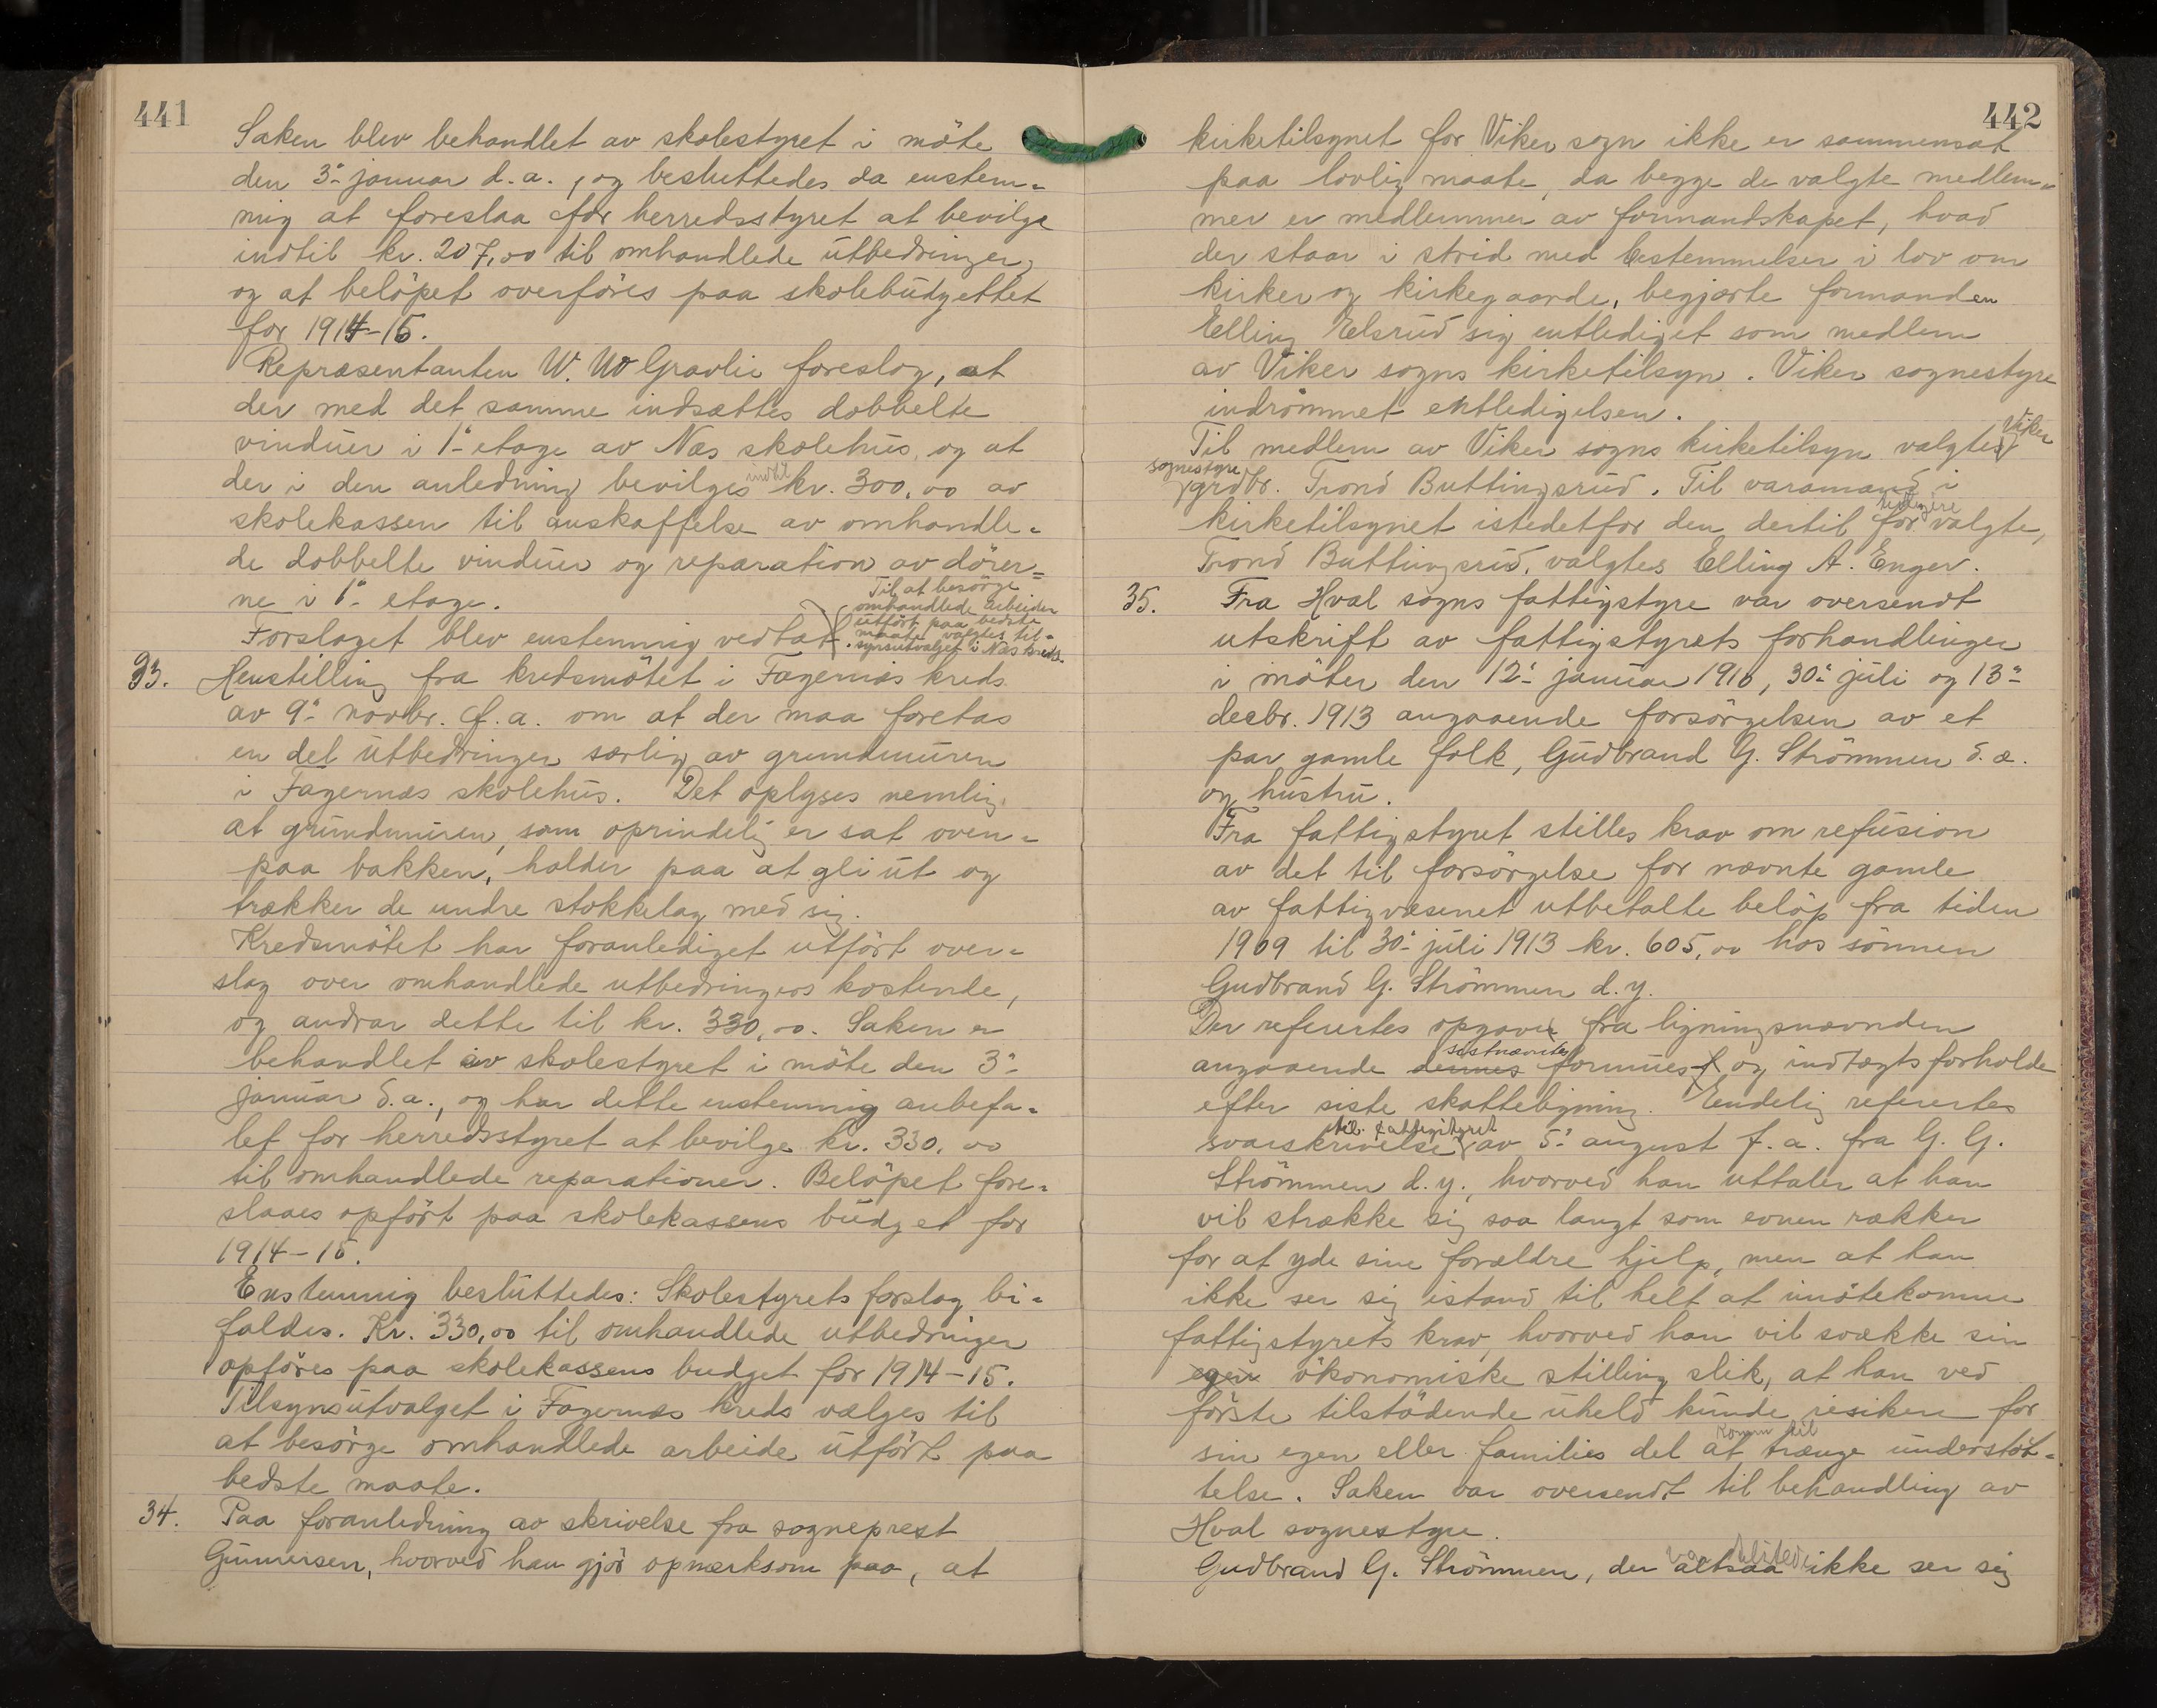 441
Saken blev behandlet av skolestyret i möte
den 3- januar d.a., og besluttedes da enstem-
mig at foreslaa for herredsstyret at bevilge
indtil kr. 207,00 til omhandlede utbedringer,
og at belöpet overföres paa skolebudgettet
for 1914-15.
Repræsentanten W. Gravlie foreslog, at
der med det samme indsættes dobbelte
vinduer i 1- etage av Næs skolehus, og at
der i den anledning bevilges indtil kr. 300,00 av
skolekassen til anskaffelse av omhandle-
de dobbelte vinduer og reparation av dörer-
ne i 1- etage.
Forslaget blev enstemmig vedtat. Til at besörge
omhandlede arbeider
utfört paa bedste
maate valgtes til-
synsutvalget i Næs kreds.
33. Henstilling fra kredsmötet i Fagernæs kreds
av 9- novbr. f.a. om at der maa foretas
en del utbedringer særlig av grundmuren
i Fagernæs skolehus. Det oplyses nemlig,
at grundmuren, som oprindelig er sat oven-
paa bakken, holder paa at gli ut og
trækker de undre stokkelag med sig.
Kredsmötet har foranlediget utfört over-
slag over omhandlede utbedringers kostende,
og andrar dette til kr. 330,00. Saken er
behandlet av skolestyret i möte den 3-
januar d.a., og har dette enstemmig anbefa-
let for herredsstyret at bevilge kr. 330,00
til omhandlede reparationer. Belöpet fore-
slaaes opfört paa skolekassens budget for
1914-15.
Enstemmig besluttedes: Skolestyrets forslag bi-
faldes. Kr. 330,00 til omhandlede utbedringer
opföres paa skolekassens budget for 1914-15.
Tilsynsutvalget i Fagernæs kreds vælges til
at besörge omhandlede arbeide utfört paa
bedste maate.
34. Paa foranledning av skrivelse fra sogneprest
Gunnersen, hvorved han gjör opmærksom paa, at
442
kirketilsynet for Viker sogn ikke er sammensat
paa lovlig maate, da begge de valgte medlem-
mer er medlemmer av formandskapet, hvad
der staar i strid med bestemmelser i lov om
kirker og kirkegaarde, begjærte formanden
Elling Elsrud sig entlediget som medlem
av Viker sogns kirketilsyn. Viker sognestyre
indrömmet entledigelsen.
Til medlem av Viker sogns kirketilsyn valgtes Viker
sognestyre grdbr. Trond Buttingsrud. Til varamand i
kirketilsynet istedetfor den dertil tidligere for valgte,
Trond Buttingsrud, valgtes Elling A. Enger.
35. Fra Hval sogns fattigstyre var oversendt
utskrift av fattigstyrets forhandlinger
i möter den 12- januar 1910, 30- juli og 13-
decbr. 1913 angaaende forsörgelsen av et
par gamle folk, Gudbrand G. Strömmen d.æ.
og hustru.
Fra fattigstyret stilles krav om refusion
av det til forsörgelse for nævnte gamle
av fattigvæsenet utbetalte belöp fra tiden
1909 til 30- juli 1913 kr. 605,00 hos sönnen
Gudbrand G. Strömmen d.y.
Der refertes opgave fra ligningsnævnden
angaaende dennes sistnævntes formues- og indtægtsforholde
efter siste skatteligning. Endelig refertes
svarskrivelse til fattigstyret av 5- august f.a. fra G. G.
Strömmen d.y., hvorved han uttaler at han
vil strække sig saa langt som evnen rækker
for at yde sine forældre hjelp, men at han
ikke ser sig istand til helt at imötekomme
fattigstyrets krav, hvorved han vil svække sin
egen ökonomiske stilling slik, at han ved
förste tilstödende uheld kunde risikere for
sin egen eller families del at komme til trænge understöt-
telse. Saken var oversendt til behandling av
Hval sognestyre.
Gudbrand G. Strömmen, der altsaa ikke ser sig